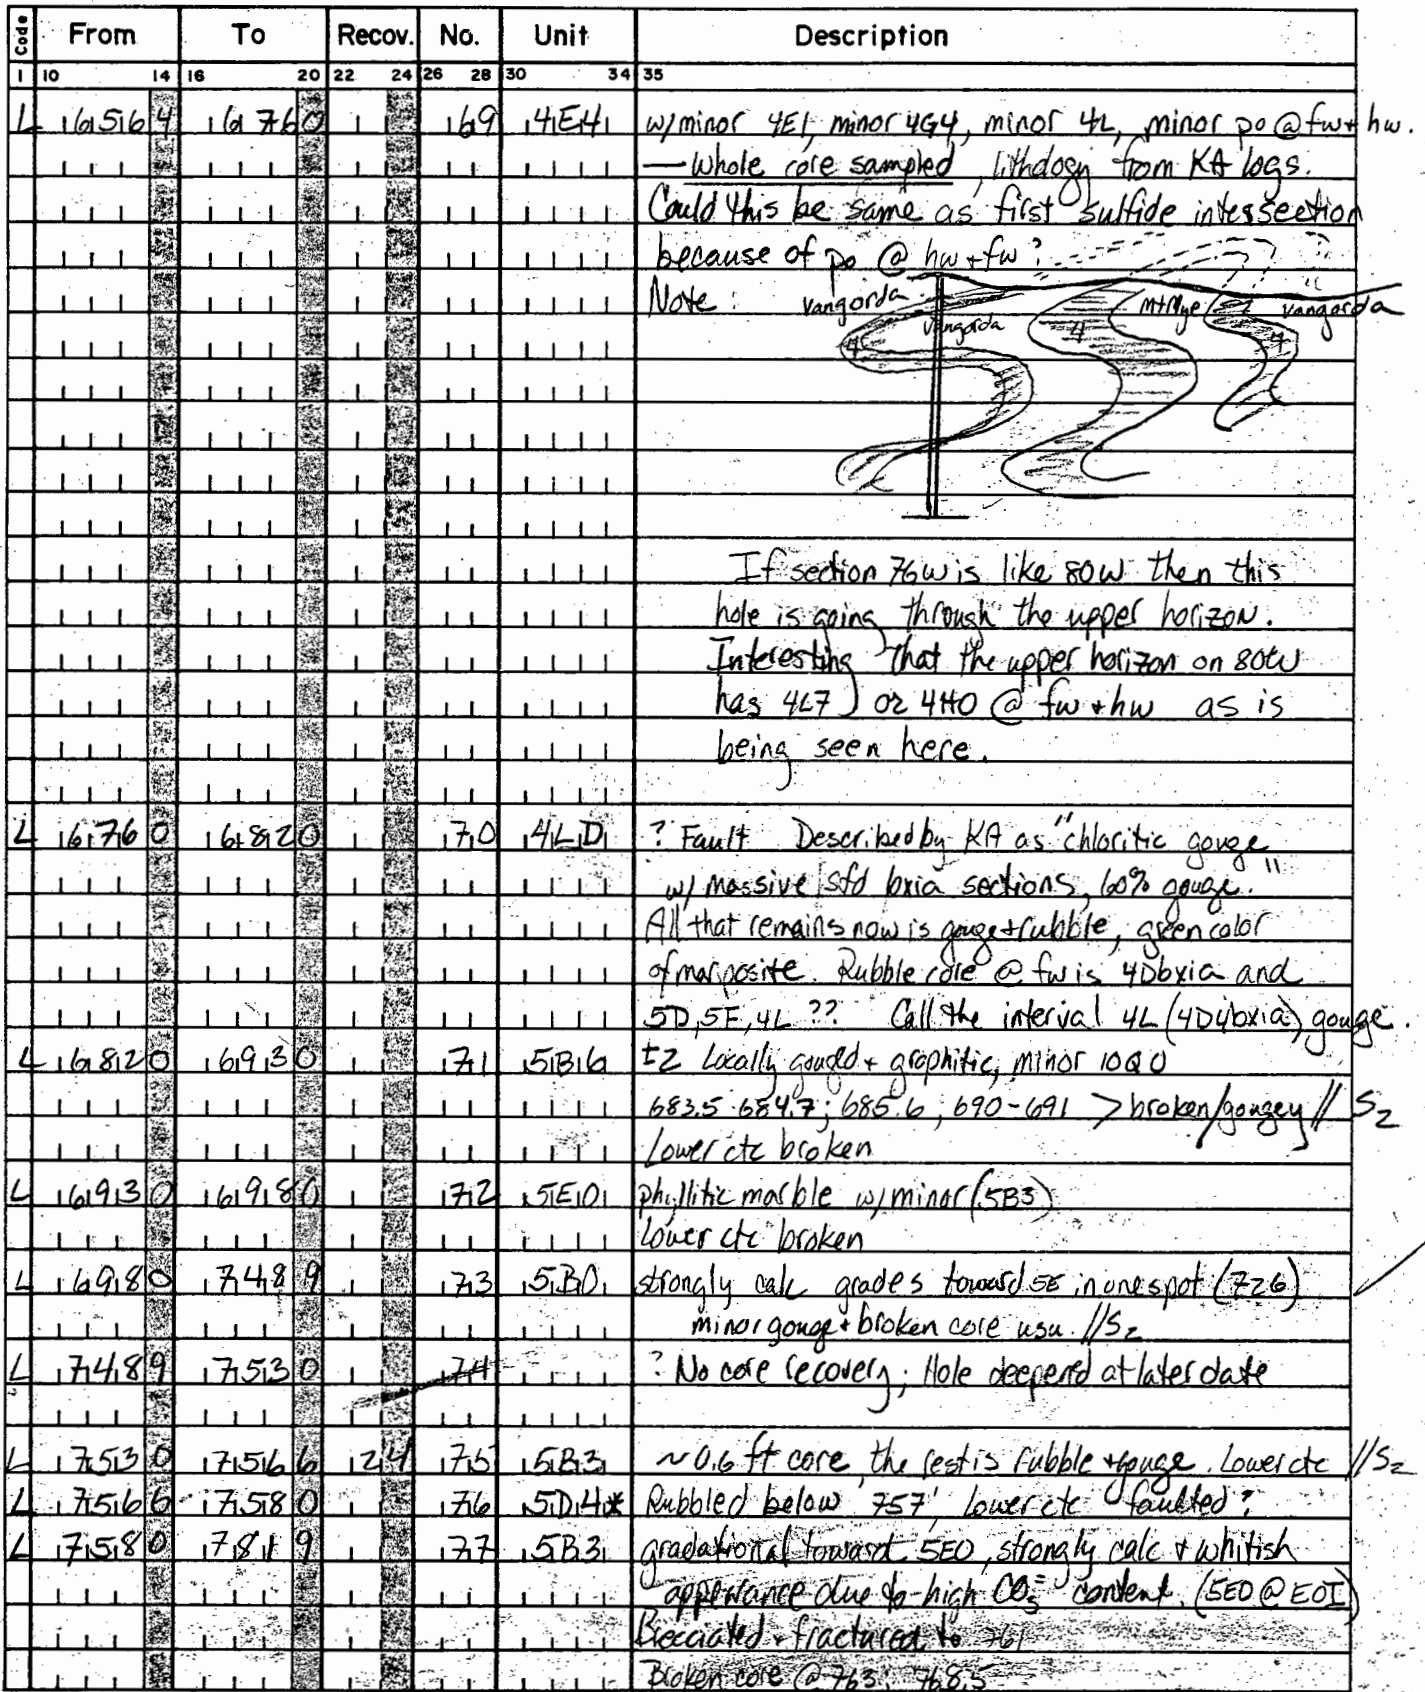 Code From To Recov. No. Unit Description
1 10 14 16 20 22 24 26 28 30 34 35
L 656 4 676 0 69 4E4 w/minor 4E1, minor 4G4, minor 4L, minor po @ fw + hw.
— Whole core sampled, lithology from KA logs.
Could this be same as first sulfide intersection
because of po @ hw + fw?
Note: vangorda vangorda 4 4 Mt Mye 4 vangorda
If section 76W is like 80W then this
hole is going through the upper horizon.
Interesting that the upper horizon on 80W
has 4L7 or 4H0 @ fw + hw as is
being seen here.
L 676 0 682 0 70 4LD ? Fault Described by KA as "chloritic gouge
w/ massive sfd bxia sections, 60% gouge."
All that remains now is gouge + rubble, green color
of mariposite. Rubble core @ fw is 4Dbxia and
5D, 5F, 4L ?? Call the interval 4L (4D4bxia) gouge.
L 682 0 693 0 71 5B6 ±2 Locally gouged + graphitic, minor 10Q0
683.5-684.7; 685.6; 690-691 > broken/gougey // S2
Lower ctc broken
L 693 0 698 0 72 5E0 phyllitic marble w/minor (5B3)
Lower ctc broken
L 698 0 748 9 73 5B0 strongly calc grades toward 5E in one spot (726)
minor gouge + broken core usu. //S2
L 748 9 753 0 74 ? No core recovery; Hole deepend at later date
L 753 0 756 6 24 75 5B3 ~0.6 ft core, the rest is rubble + gouge. Lower ctc //S2
L 756 6 758 0 76 5D4* Rubbled below 757', Lower ctc faulted?
L 758 0 781 9 77 5B3 gradational toward 5E0, strongly calc + whitish
appearance due to high CO3= content. (5E0 @ EOI)
Brecciated + fractured to 761
Broken core @ 763; 768.5